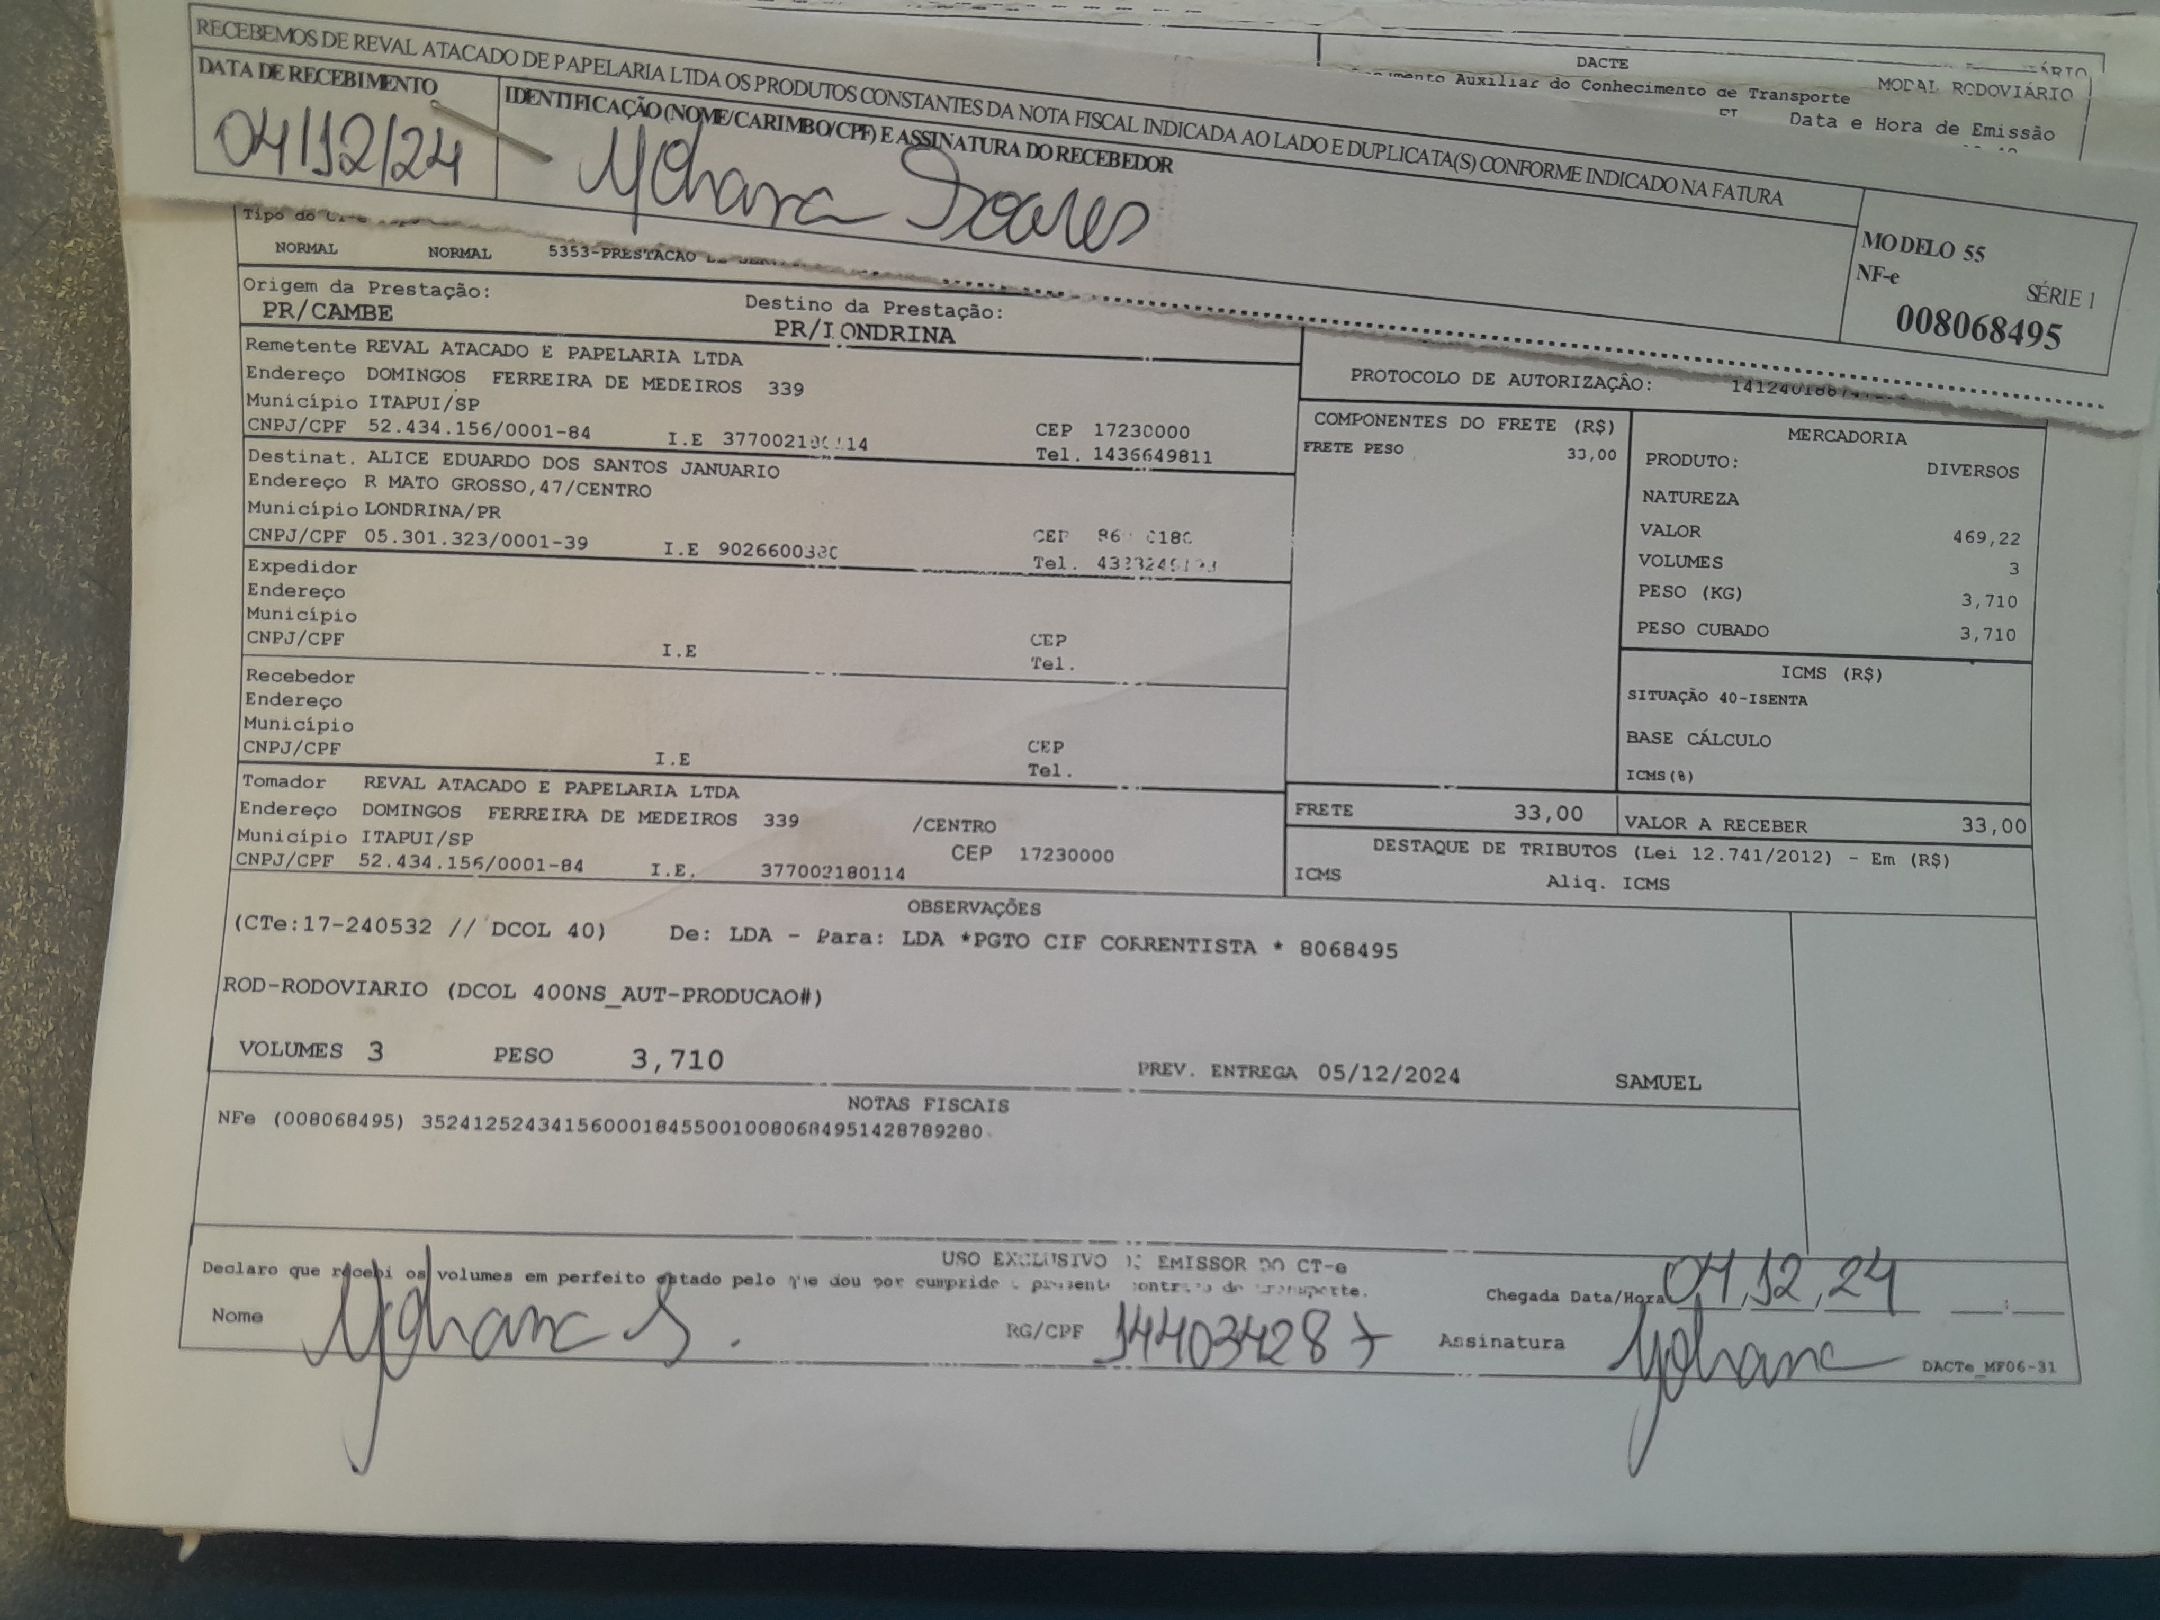 RECEBEMOS DE REVAL ATACADO DE PAPELARIA LTDA OS PRODUTOS CONSTANTES DA NOTA FISCAL INDICADA AO LADO E DUPLICATA(S) CONFORME INDICADO NA FATURA
DATA DE RECEBIMENTO
04/12/24
IDENTIFICAÇÃO (NOME/CARIMBO/CPF) E ASSINATURA DO RECEBEDOR
Yohana Soares
MODELO 55
NF-e SÉRIE 1
008068495
DACTE
Auxiliar do Conhecimento de Transporte
MODAL RODOVIÁRIO
Data e Hora de Emissão
Tipo do
NORMAL NORMAL 5353-PRESTACAO
Origem da Prestação:
PR/CAMBE
Destino da Prestação:
PR/LONDRINA
Remetente REVAL ATACADO E PAPELARIA LTDA
Endereço DOMINGOS FERREIRA DE MEDEIROS 339
Município ITAPUI/SP
CEP 17230000
CNPJ/CPF 52.434.156/0001-84 I.E
Tel. 1436649811
Destinat. ALICE EDUARDO DOS SANTOS JANUARIO
Endereço R MATO GROSSO,47/CENTRO
Município LONDRINA/PR
CEP
CNPJ/CPF 05.301.323/0001-39 I.E
Tel.
Expedidor
Endereço
Município
CNPJ/CPF I.E CEP
Tel.
Recebedor
Endereço
Município
CNPJ/CPF I.E CEP
Tel.
Tomador REVAL ATACADO E PAPELARIA LTDA
Endereço DOMINGOS FERREIRA DE MEDEIROS 339 /CENTRO
Município ITAPUI/SP CEP 17230000
CNPJ/CPF 52.434.156/0001-84 I.E. 377002180114
PROTOCOLO DE AUTORIZAÇÃO:
COMPONENTES DO FRETE (R$)
FRETE PESO 33,00
MERCADORIA
PRODUTO: DIVERSOS
NATUREZA
VALOR 469,22
VOLUMES 3
PESO (KG) 3,710
PESO CUBADO 3,710
ICMS (R$)
SITUAÇÃO 40-ISENTA
BASE CÁLCULO
ICMS(%)
FRETE 33,00 VALOR A RECEBER 33,00
DESTAQUE DE TRIBUTOS (Lei 12.741/2012) - Em (R$)
ICMS Aliq. ICMS
OBSERVAÇÕES
(CTe:17-240532 // DCOL 40) De: LDA - Para: LDA *PGTO CIF CORRENTISTA * 8068495
ROD-RODOVIARIO (DCOL 400NS_AUT-PRODUCAO#)
VOLUMES 3 PESO 3,710 PREV. ENTREGA 05/12/2024 SAMUEL
NOTAS FISCAIS
NFe (008068495) 35241252434156000184550010080684951428789280
USO EXCLUSIVO DO EMISSOR DO CT-e
Declaro que recebi os volumes em perfeito estado pelo que dou por cumprido o presente contrato de transporte.
Chegada Data/Hora 04/12/24
Nome Yohana S.
RG/CPF 144034287
Assinatura Yohana
DACTe_MF06-31